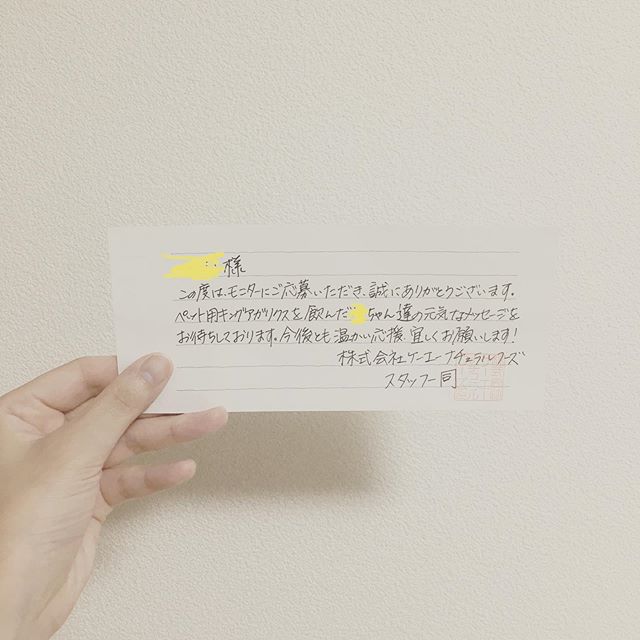 様
この度は、モニターにご応募いただき、誠にありがとうございます。
ペット用キングアガリクスを飲んだ ちゃん達の元気なメッセージを
お待ちしております。今後とも温かい応援、宜しくお願いします!
株式会社ケーエーナチュラルフーズ
スタッフ一同